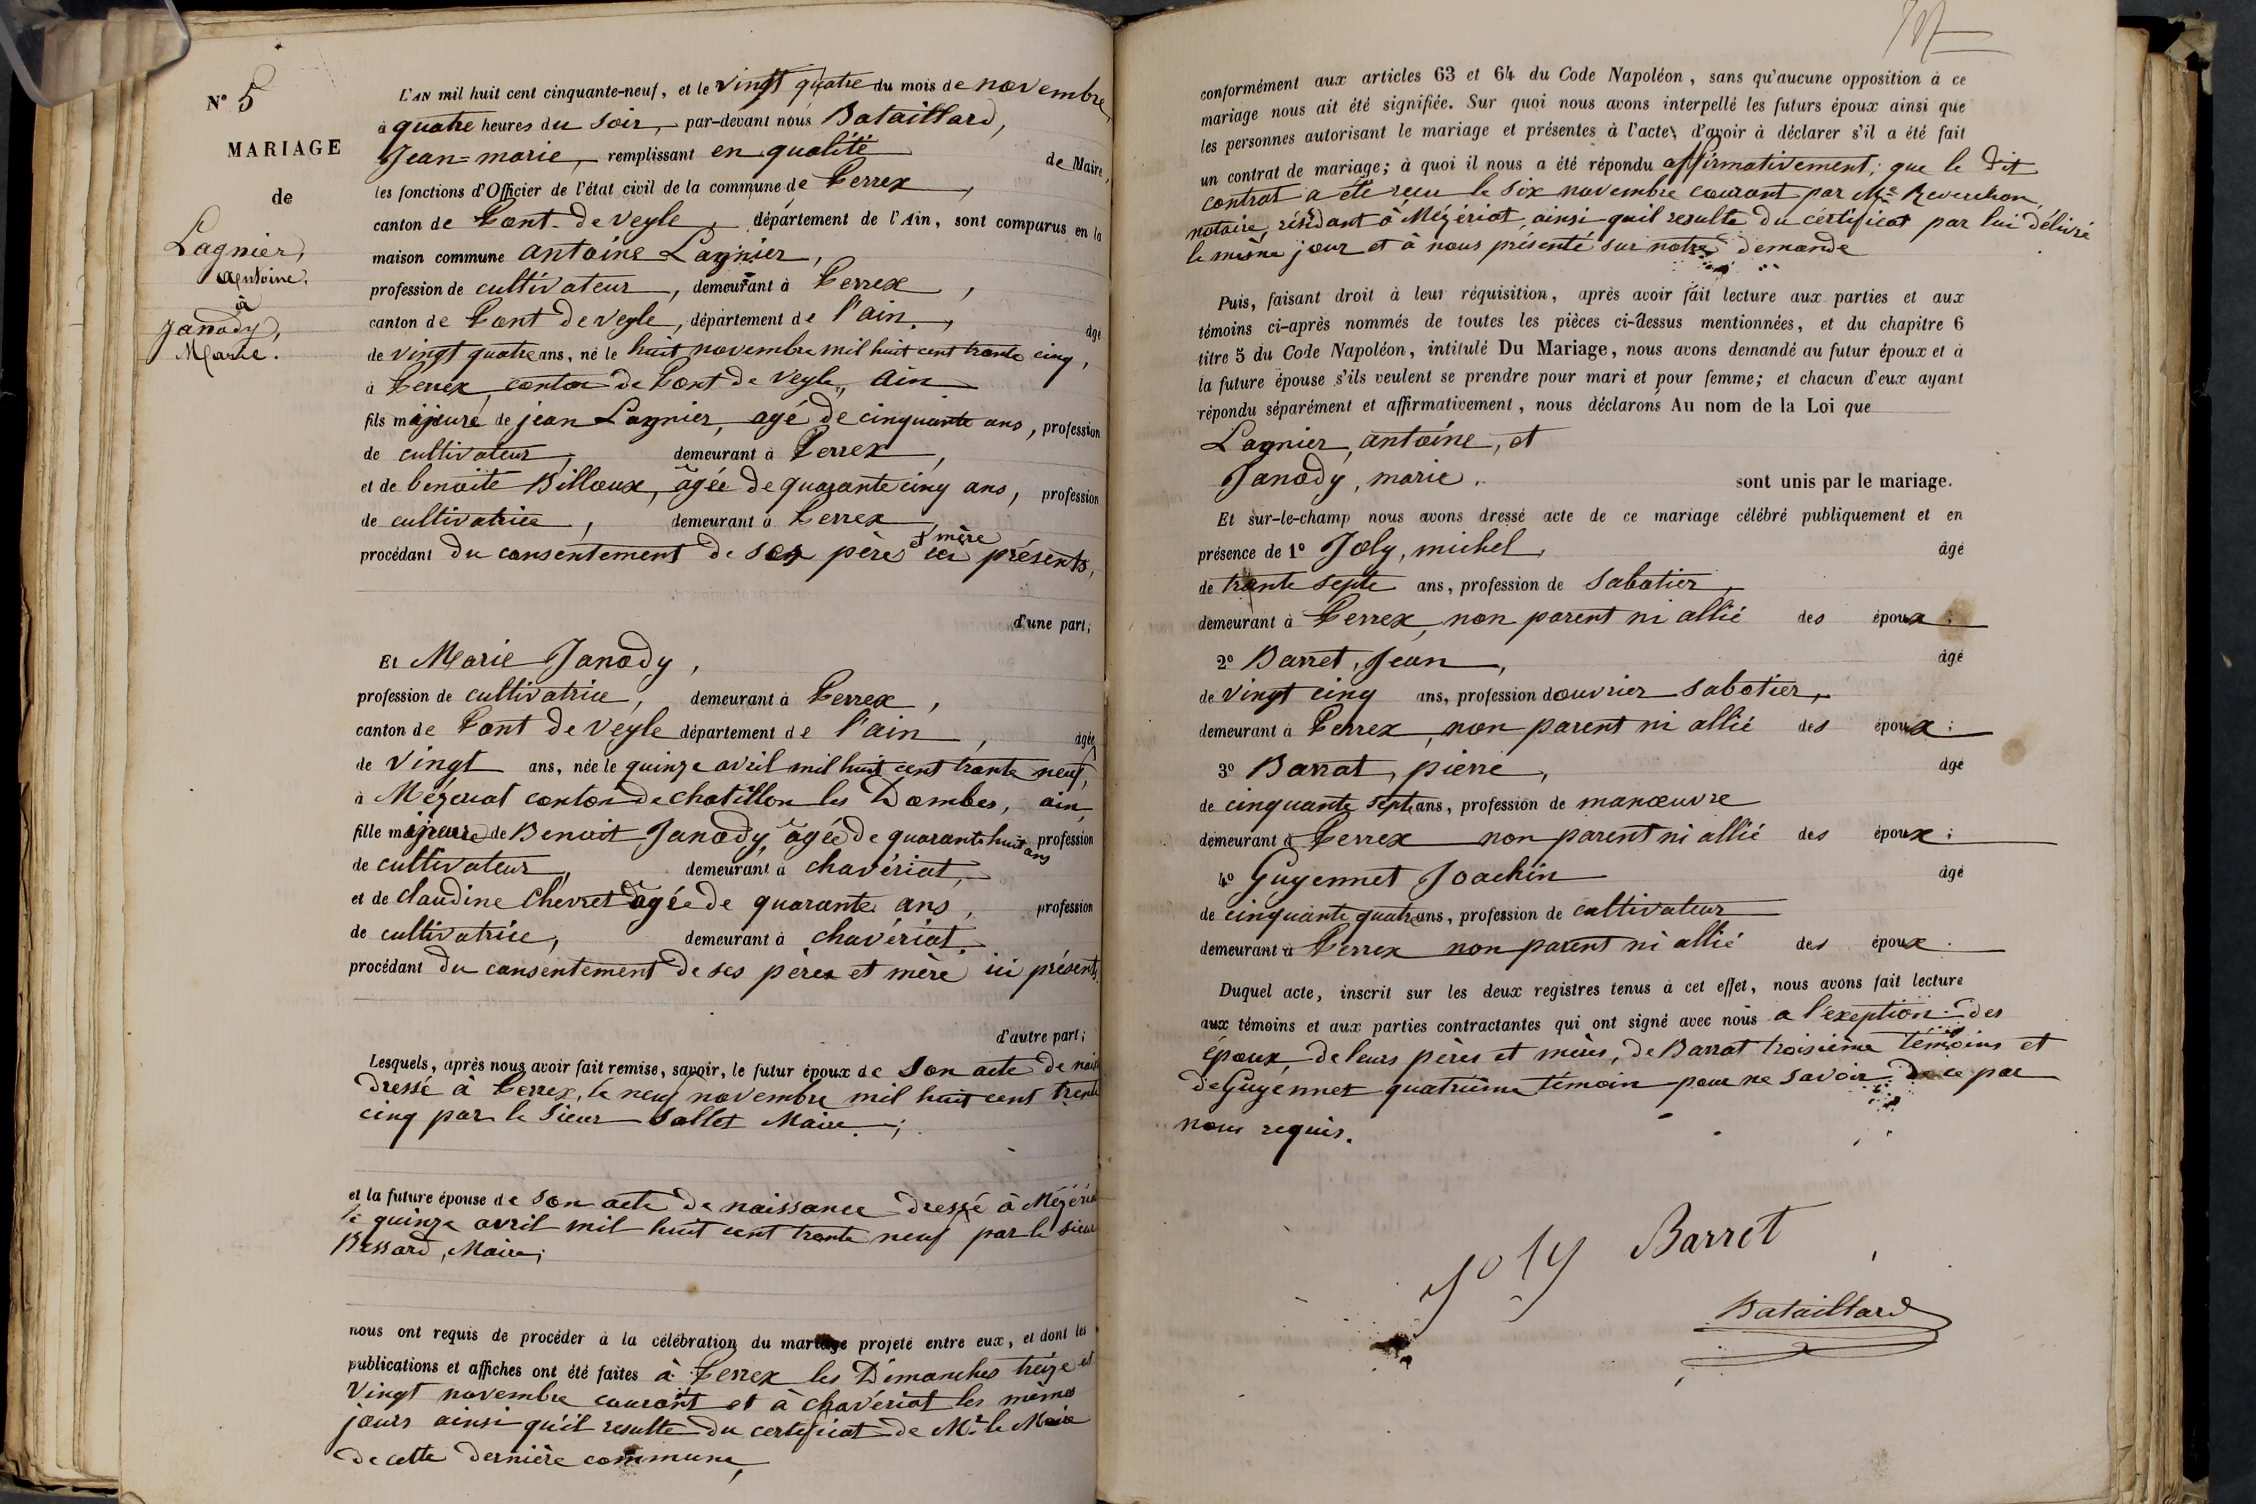 N° 5
MARIAGE
de
Lagnier,
Antoine.
à
Janody,
Marie.
L'AN mil huit cent cinquante-neuf, et le vingt quatre du mois de novembre,
à quatre heures du soir, par-devant nous Bataillard,
Jean=marie, remplissant en qualité de Maire,
les fonctions d'Officier de l'état civil de la commune de Perrex,
canton de Pont-de-Veyle, département de l'Ain, sont comparus en la
maison commune antoine Lagnier,
profession de cultivateur, demeurant à Perrex,
canton de Pont de veyle, département de l'ain, âgé
de vingt quatre ans, né le huit novembre mil huit cent trente cinq,
à Perrex, canton de Pont de Veyle, Ain
fils majeur de jean Lagnier, agé de cinquante ans, profession
de cultivateur, demeurant à Perrex,
et de benoite Billoux, âgée de quarante cinq ans, profession
de cultivatrice, demeurant à Perrex,
procédant du consentement de ses père et mère ici présents,
d'une part;
Et Marie Janody,
profession de cultivatrice, demeurant à Perrex,
canton de Pont de Veyle département de l'ain, âgée
de vingt ans, née le quinze avril mil huit cent trente neuf,
à Mézeriat canton de chatillon les Dombes, ain,
fille majeure de Benoit Janody, âgée de quarante huit ans profession
de cultivateur, demeurant à chavériat,
et de claudine Chevret âgée de quarante ans, profession
de cultivatrice, demeurant à chavériat.
procédant du consentement de ses pères et mère ici présents,
d'autre part;
Lesquels, après nous avoir fait remise, savoir, le futur époux de son acte de nais
dressé à Perrex, le neuf novembre mil huit cent trente
cinq par le Sieur Sallet Maire;
et la future épouse de son acte de naissance dressé à Mézériat
le quinze avril mil huit cent trente neuf par le sieur
Bessard, Maire;
nous ont requis de procéder à la célébration du mariage projeté entre eux, et dont les
publications et affiches ont été faites à Perrex les Dimanches treize et
vingt novembre courant et à chavériat les mêmes
jours ainsi qu'il resulte du certificat de Mr le Maire
de cette dernière commune,
conformément aux articles 63 et 64 du Code Napoléon, sans qu'aucune opposition à ce
mariage nous ait été signifiée. Sur quoi nous avons interpellé les futurs époux ainsi que
les personnes autorisant le mariage et présentes à l'acte, d'avoir à déclarer s'il a été fait
un contrat de mariage; à quoi il nous a été répondu affirmativement; que le dit
contrat a été reçu le six novembre courant par Me Reverchon,
notaire, résidant à Mézériat, ainsi qu'il resulte du certificat par lui délivré
le même jour et à nous présenté sur notre demande
Puis, faisant droit à leur réquisition, après avoir fait lecture aux parties et aux
témoins ci-après nommés de toutes les pièces ci-dessus mentionnées, et du chapitre 6
titre 5 du Code Napoléon, intitulé Du Mariage, nous avons demandé au futur époux et à
la future épouse s'ils veulent se prendre pour mari et pour femme; et chacun d'eux ayant
répondu séparément et affirmativement, nous déclarons Au nom de la Loi que
Lagnier, antoine, et
Janody, marie. sont unis par le mariage.
Et sur-le-champ nous avons dressé acte de ce mariage célébré publiquement et en
présence de 1° Joly, michel, âgé
de trente septe ans, profession de Sabatier,
demeurant à Perrex, non parent ni allié des époux;
2° Barret, Jean, âgé
de vingt cinq ans, profession d'ouvrier Sabotier,
demeurant à Perrex, non parent ni allié des époux;
3° Barrat, pierre, âgé
de cinquante septe ans, profession de manœuvre
demeurant à Perrex non parent ni allié des époux;
4° Guyennet Joachin âgé
de cinquante quatre ans, profession de cultivateur
demeurant à Perrex non parent ni allié des époux.
Duquel acte, inscrit sur les deux registres tenus à cet effet, nous avons fait lecture
aux témoins et aux parties contractantes qui ont signé avec nous a l'exeption des
époux, de leurs pères et mères, de Barrat troisième témoins et
de Guyennet quatrième témoin pour ne savoir de ce par
nous requis.
Joly Barret
Bataillard